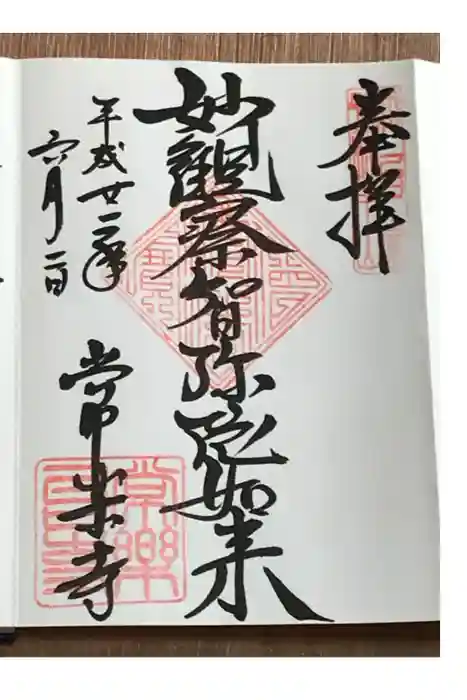 奉拝
妙観察智弥陀如来
平成廿二年
六月二日
常楽寺